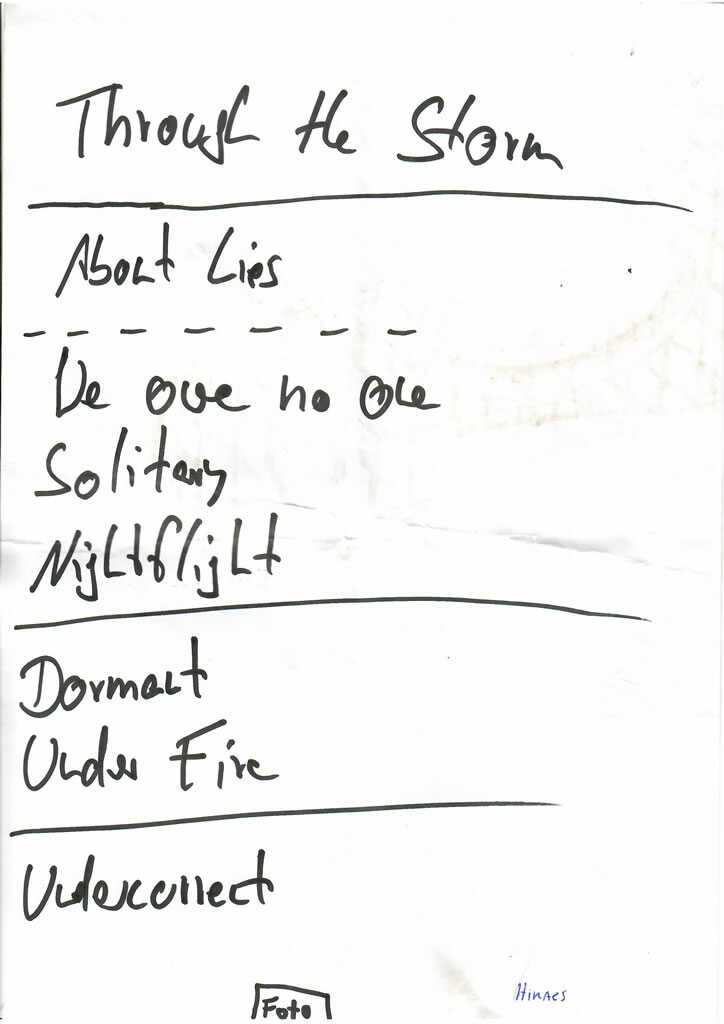 Through the Storm
About Lies
We owe no one
Solitary
Nightflight
Dormant
Under Fire
Undercurrent
Foto